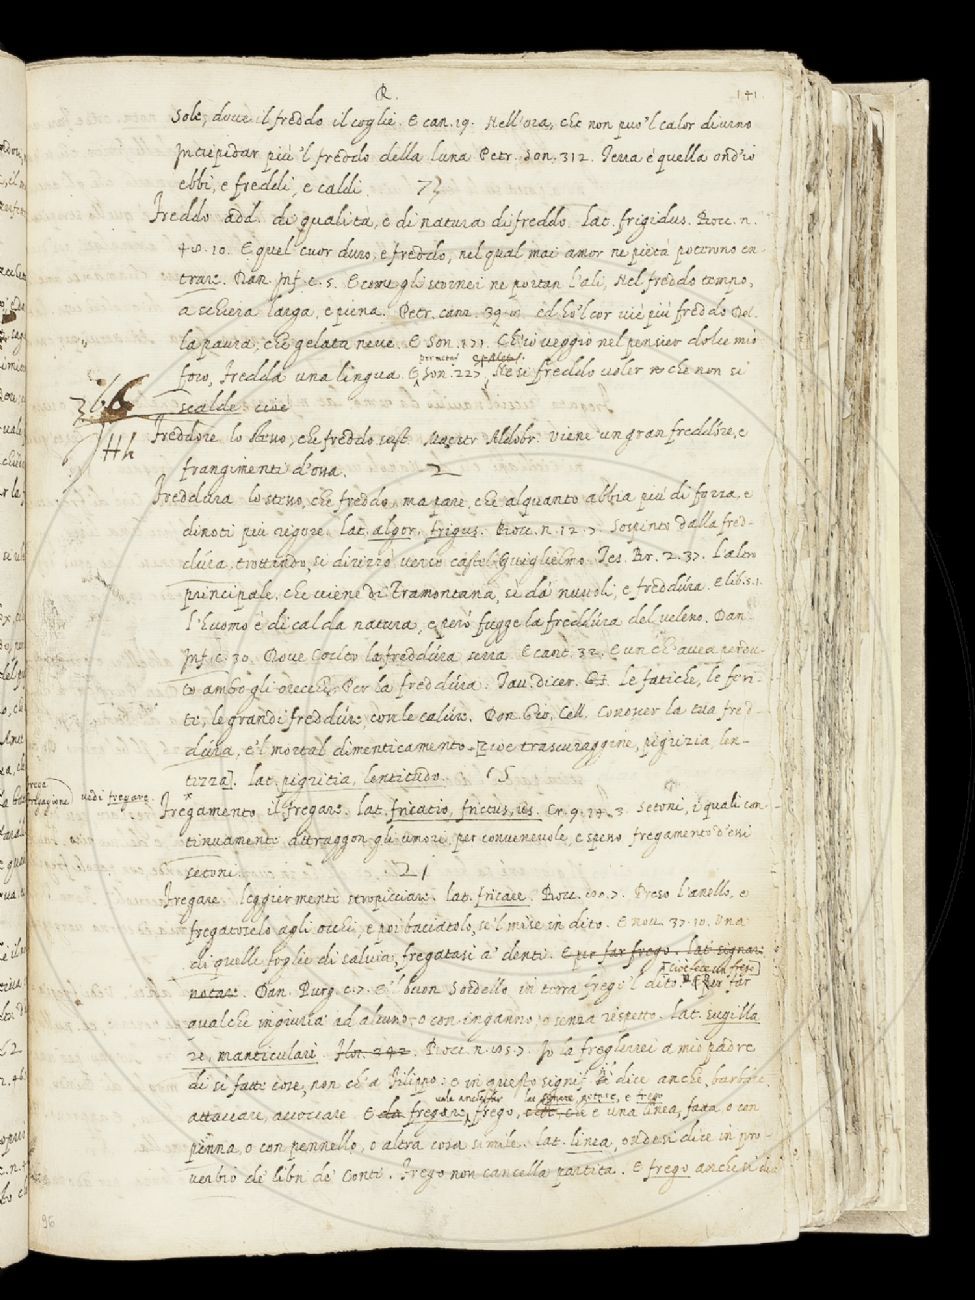 R.
141.
Sole, dove il freddo il coglie. E can. 19. Nell'ora, che non puo 'l calor diurno
Intiepidar più 'l freddo della luna Petr. Son. 312. Terra è quella ond'io
ebbi, e freddi, e caldi.
Freddo add. di qualità, e di natura di freddo. Lat. frigidus. Bocc. n.
48. 10. E quel cuor duro, e freddo, nel qual mai amor ne pietà potterono en
trare. Dan. Inf. c. 5. E come gli stornei ne portan l'ali, Nel freddo tempo,
a schiera larga, e piena. Petr. canz. 39. ed ho 'l cor vie più freddo Del
la paura, che gelata neve. E Son. Ch'io veggio nel pensier dolce mio
foco, Fredda una lingua. E Son. 227. Ne si freddo voler che non si
scalde cioè
Freddore lo stesso, che freddo sust. Maestr Aldobr. viene un gran freddore, e
Hh
frangimenti d'ossa. 2
Freddura lo stesso, che freddo, ma pare, che alquanto abbia più di forza, e
dinoti più rigore. Lat. algor. frigus. Bocc. n. 12. 7. Sospinto dalla fred-
dura, trottando, si dirizzò verso castel Guiglielmo. Tes. Br. 2. 37. L'altro
principale, che viene di Tramontana, sì dà nuvoli, e freddura. E lib. 5. 1.
L'huomo è di calda natura, e però fugge la freddura del veleno. Dan
Inf. c. 30. Dove Cocito la freddura serra E cant. 32. E un ch'avea perdu-
to ambo gli orecchi, Per la freddura. Tav. dicer. Le fatiche, le feri-
te, le grandi freddure con le calure. Don Gio. Cell. Conoscer la tua fred-
dura, e 'l mortal dimenticamento [cioè trascuraggine, pigrizia, len-
tezza]. lat. pigritia, lentitudo. 15
frega
fregagione vedi fregare.
Fregamento il fregare. Lat. fricatio, frictus, us. Cr. 9. 24. 3. Setoni, i quali con
tinuamente attraggon gli umori, per convenevole, e spesso fregamento d'essi
setoni. 21
Fregare leggiermente stropicciare. lat. fricare. Bocc. 7. Preso l'anello, e
fregatoselo agli occhi, e poi baciatolo, se 'l mise in dito. E nov. 37. 10. Una
di quelle foglie di salvia, fregatasi a' denti. E per far frego. lat. signare
[cioè fece un frego]
notare. Dan. Purg. c. 7. E 'l buon Sordello in terra fregò 'l dito. Per far
qualche ingiuria ad alcuno, o con inganno, o senza rispetto. Lat. sugilla
re, manticulari. Bocc. n. 105. 7. Io le fregherrei a mio padre
di sì fatte cose, non ch'a Filippo: e in questo signif. si dice anche barbare,
vale anche far lat. signare, notare, e frego
attaccare, accoccare E da fregare, frego, è una linea, fatta o con
penna, o con pennello, o altra cosa simile. Lat. linea, onde si dice in pro-
verbio de' libri de' Conti. Frego non cancella partita. E frego anche si dice
96